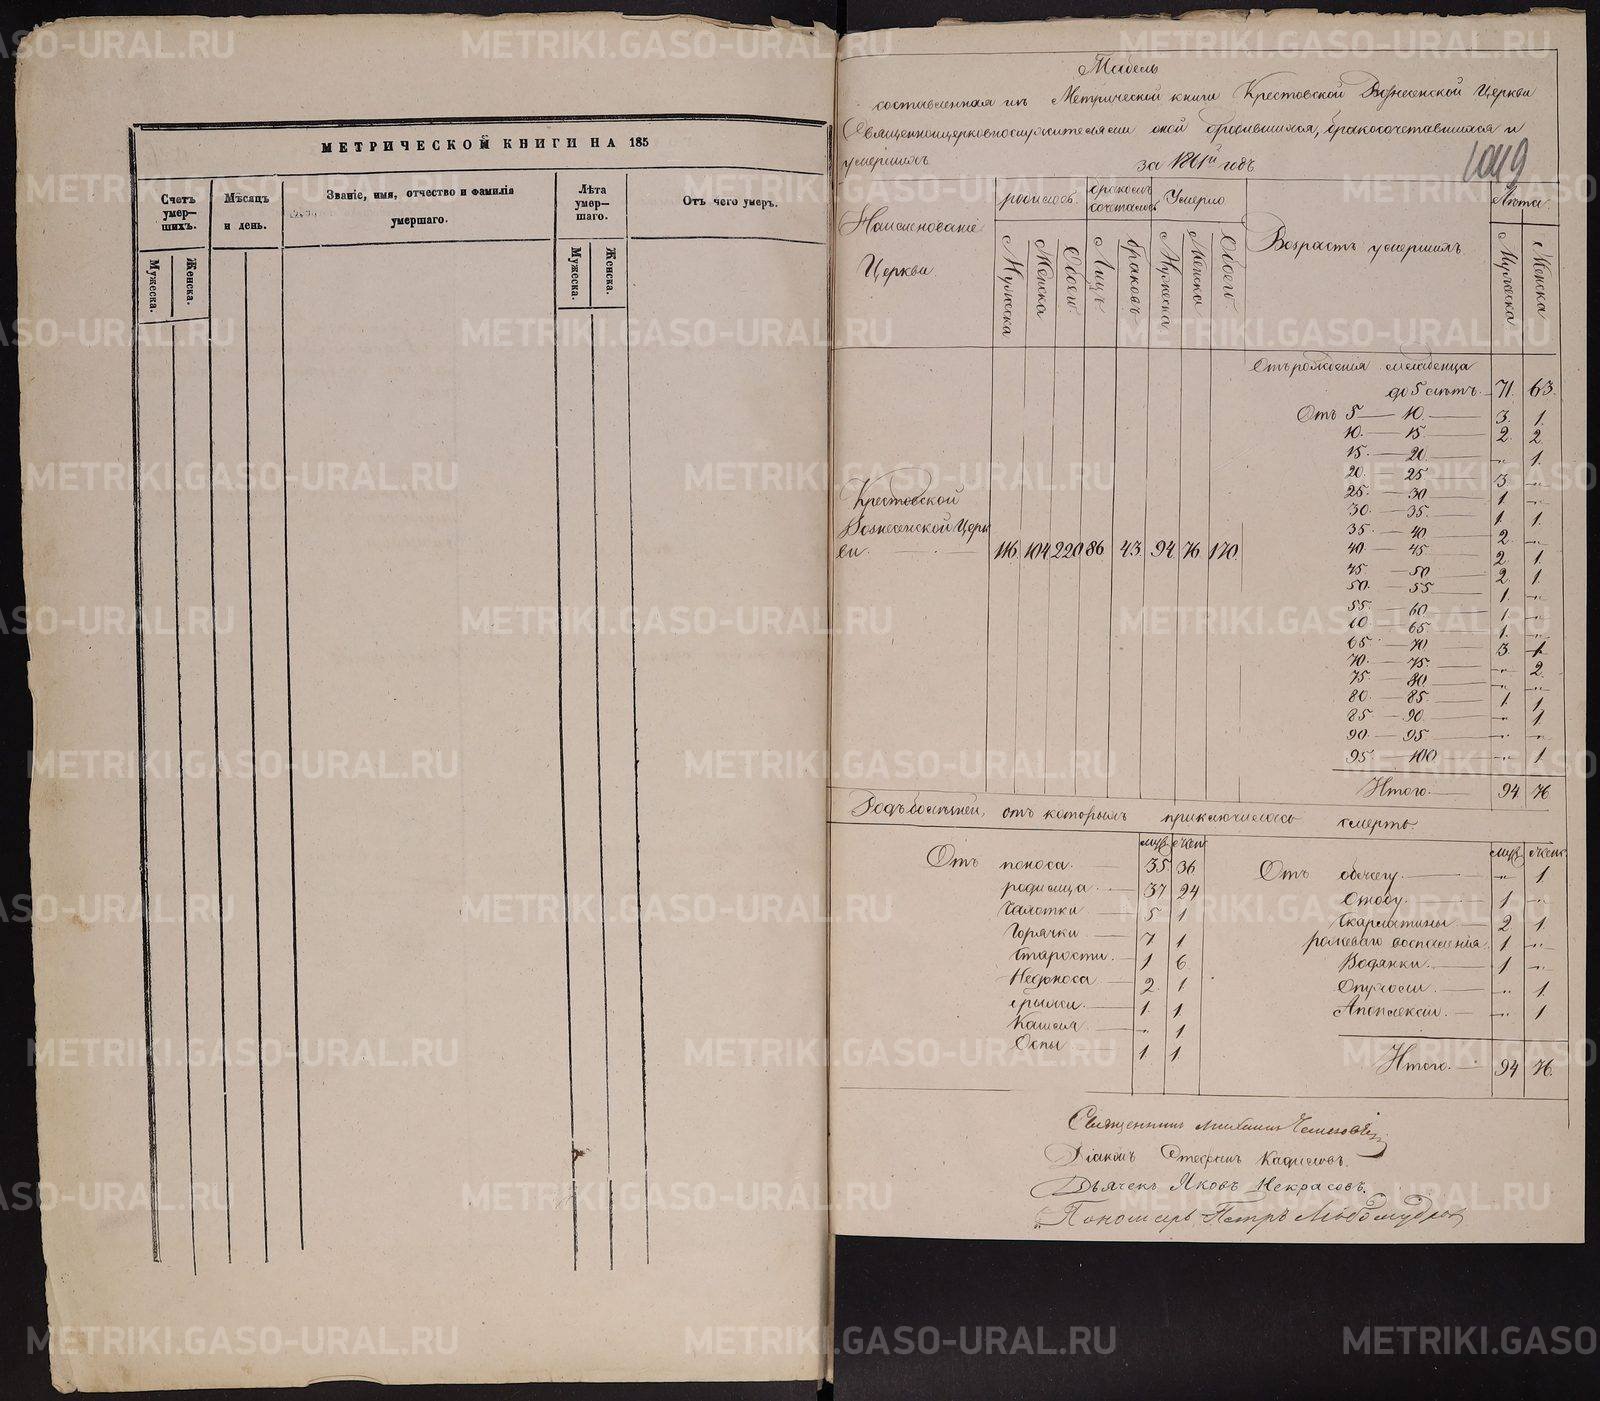 МЕТРИЧЕСКОЙ КНИГИ НА 185
Счетъ умер-шихъ.
Мужеска.
Женска.
Мѣсяцъ и день.
Званіе, имя, отчество и фамилія умершаго.
Лѣта умер-шаго.
Мужеска.
Женска.
Отъ чего умеръ.
Табель
составленная изъ Метрической книги Крестовской Вознесенской Церкви
Священноцерковнослужителями оной о родившихся, бракосочетавшихся и
умершихъ за 1861й годъ
1049
Наименованіе Церкви
родилось.
Мужеска
Женска
Обоего
бракомъ сочеталось
Лицъ
браковъ
Умерло
Мужеска
Женска
Обоего
Возрастъ умершихъ
Лѣта.
Мужеска
Женска
Крестовской
Вознесенской Церк
ви. 116. 104 220 86. 43. 94 76. 170.
Отъ рожденія младенца
до 5 лѣтъ. 71. 63.
Отъ 5 — 10. 3. 1.
10. — 15 2. 2.
15. — 20. „ 1.
20. 25 3. „
25. — 30 1. „
30. — 35. 1. 1.
35. — 40 2. „
40 — 45 2. 1.
45. — 50 2 1.
50. — 55 1. „
55. — 60 1. „
60. 65 1. „
65 — 70 3. 1.
70. — 75 „ 2.
75 — 80. „ „
80. — 85. 1. 1.
85. — 90. „ 1.
90. — 95 „ „
95. — 100. „ 1.
Итого. 94 76.
Родъ болѣзней, отъ которыхъ приключилась смерть.
муж. женс.
Отъ поноса. 35 36
родимца. 37 24
Чахотки 5 1
Горячки 7 1
Старости. 1 6
Недоноса 2. 1
грыжи. 1. 1.
Кашля. „ 1
Оспы 1. 1.
муж. женс.
Отъ „ 1
1. „
Скарлатины 2 1.
рожеваго воспаленія. 1 „
Водянки. 1 „
Опухоли. „ 1
Апоплексіи. „ 1
Итого. 94 76.
Священникъ Михаилъ
Діаконъ Стефанъ
Дьячекъ Яковъ Некрасовъ.
Пономарь Петръ Любомудров
METRIKI.GASO-URAL.RU